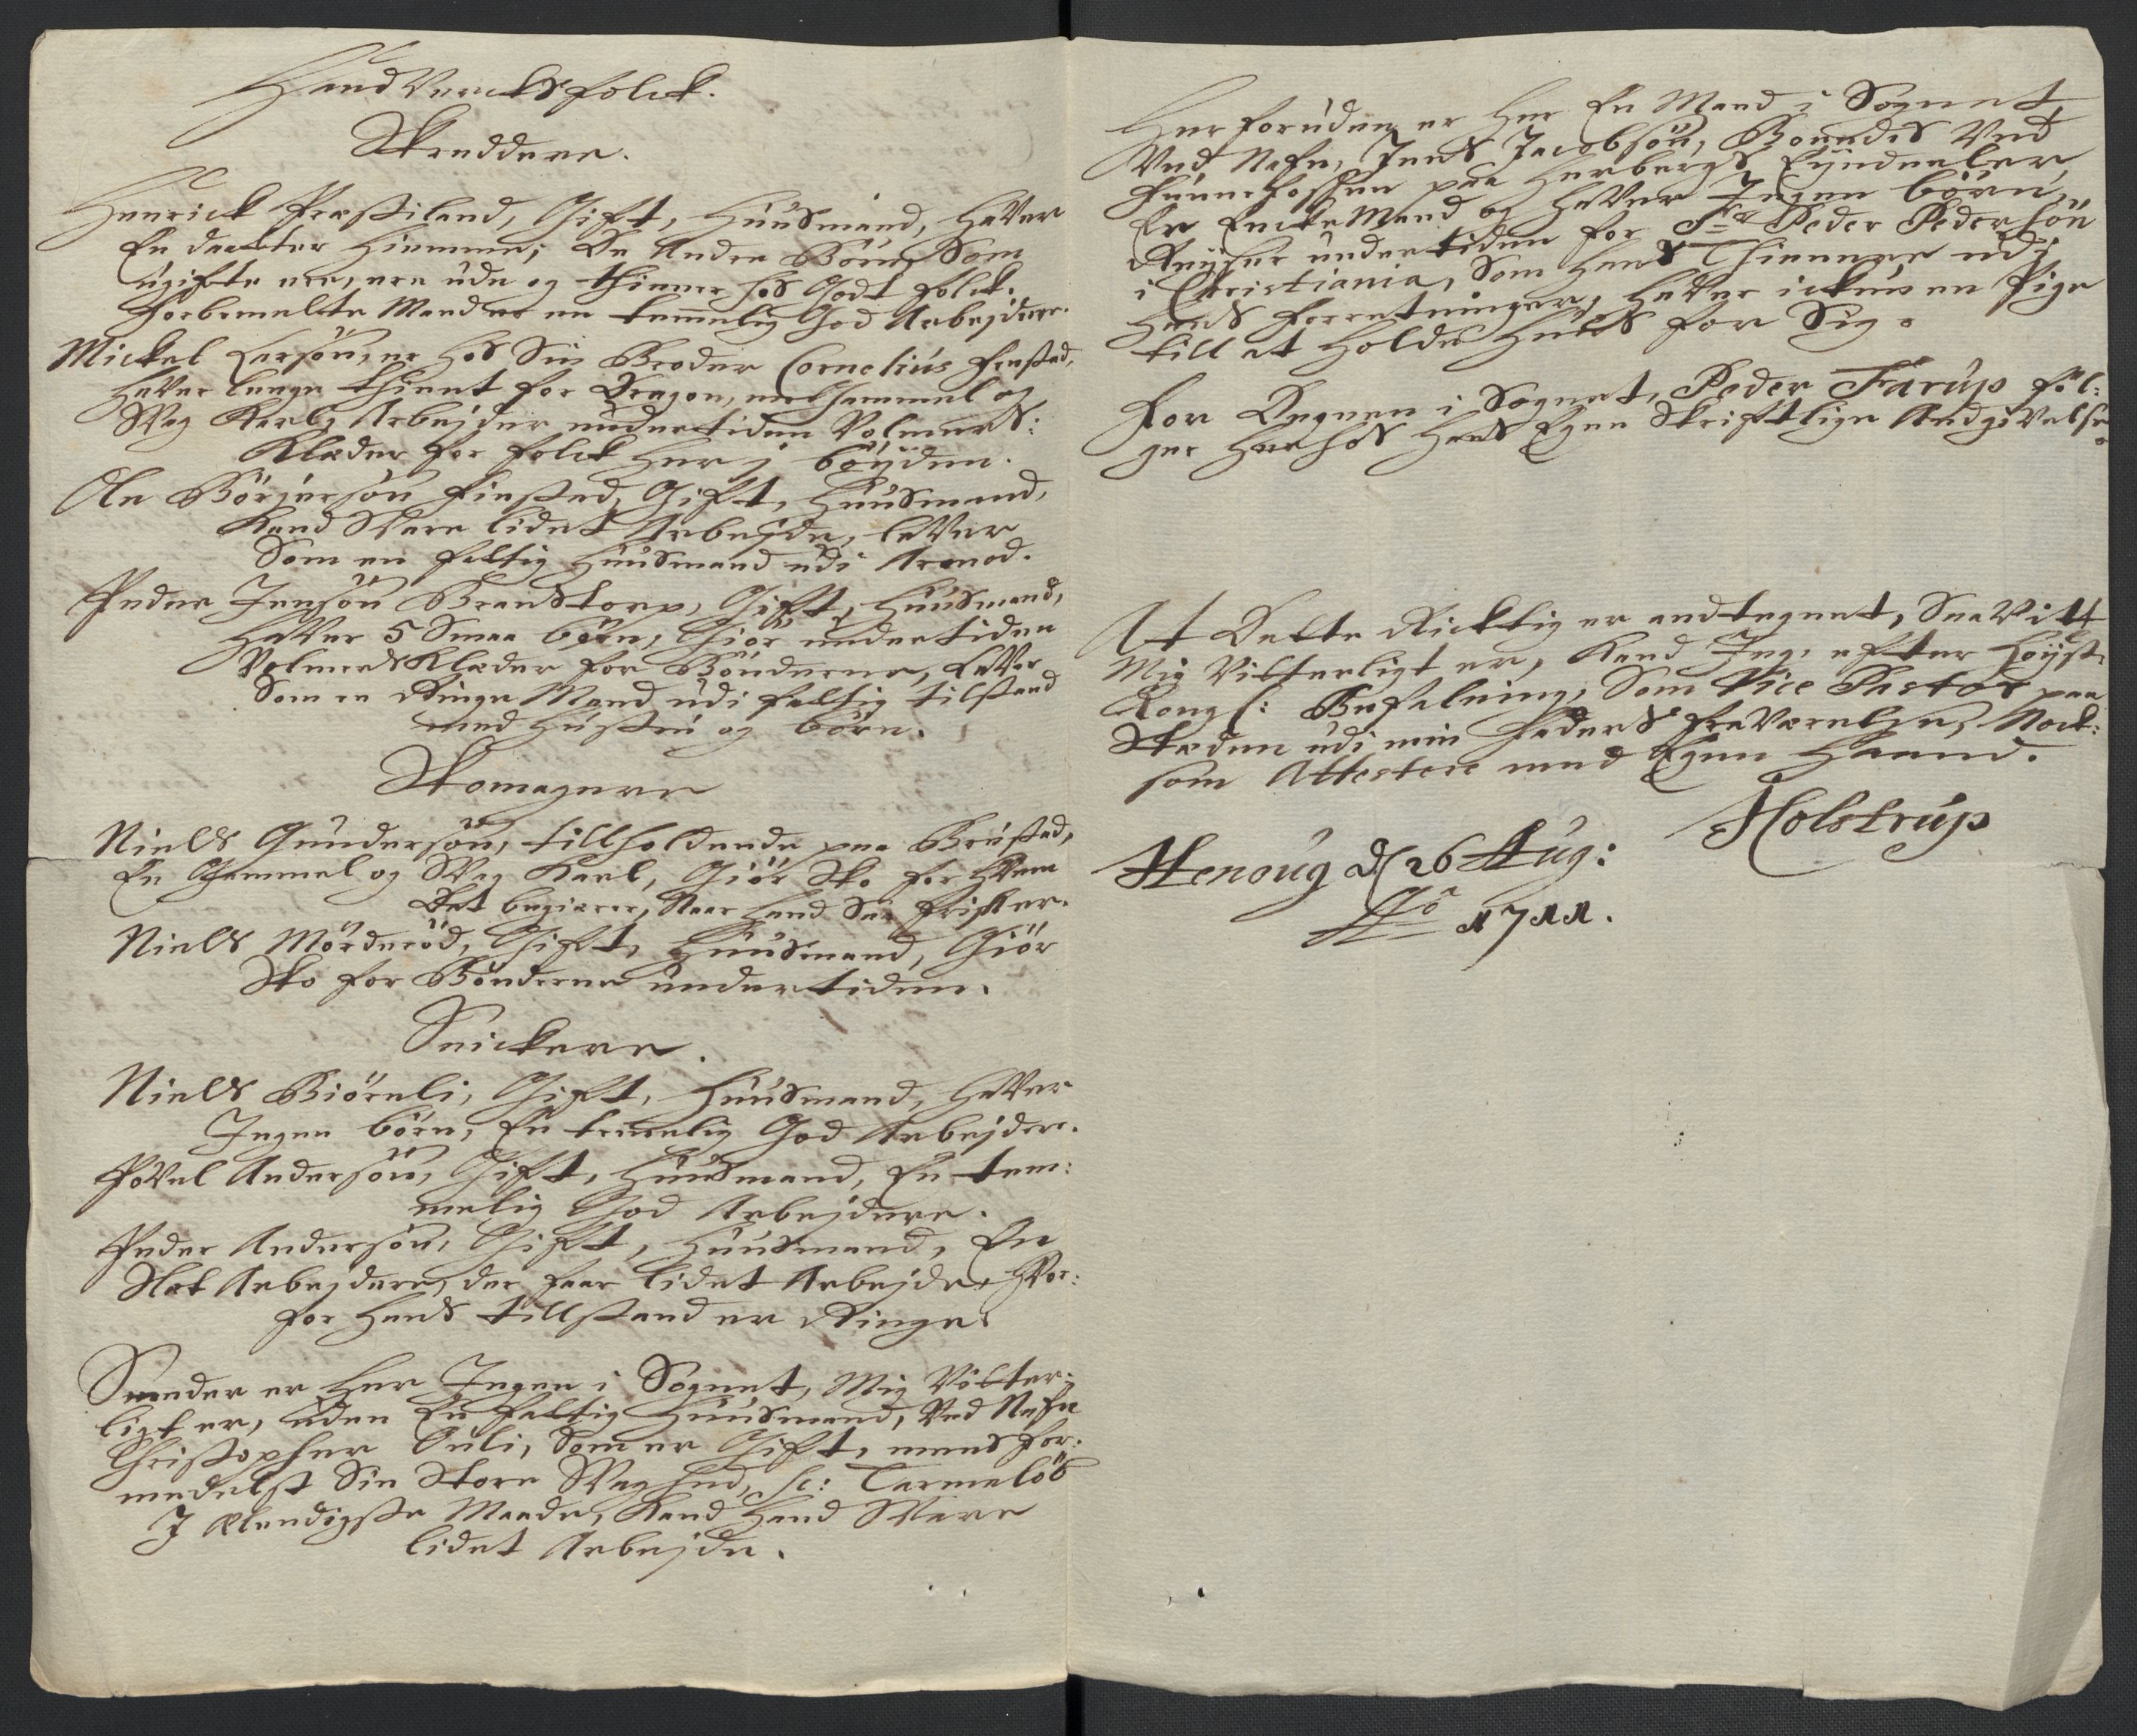 Handverchsfolck.
Skreddere.
Henrick Præstiland, Gift, Huusmand, haver
En daatter hiemme; De Andre Börn, Som
ugifte ere, ere ude og thiener hos Godt folck.
Forbemelte Mand er en temmelig God Arbejdere.
Mickel Larsön, er hos Sin Broder Cornelius
haver lenge thient for Dragon, er Gammel og
Svag Karl, Arbejder undertiden Volmers:
Klæder for folck her j böyden.
Ole Börjersön Finstad, Gift, Huusmand,
Kand Svare lidet Arbejde, lever
Som en fattig Huusmand udi Armod.
Peder Jensön Brandstorp, Gift, Huusmand,
haver 5 Smaa börn, Giör undertiden
Volmers Klæder for Bönderne, Lever
Som en Ringe Mand udi fattig tilstand
med Hustru og börn.
Skomagere
Niels Gundersön, tillholdende paa Brustad,
En Gammel og Svag Karl, Giör Sko for hvem
Det begiærer, Naar hand Saa frisk er.
Niels Mörderöd, Gift, Huusmand, Giör
Sko for Bönderne undertiden.
Snickere.
Niels Biörnli, Gift, Huusmand, haver
Ingen börn, En temmelig God Arbejdere.
Povel Andersön, Gift, Huusmand, En tem:
melig God Arbejdere.
Peder Andersön, Gift, Huusmand, En
Slet Arbejdere, der faar lidet Arbejde, hvor:
for hans tillstand er Ringe.
Smeder er her Ingen i Sognet, Mig Vitter:
ligt er, uden En fattig Huusmand, Ved Nafn
Christopher Duli, Som er Gift, mens for:
medelst Sin Store Svaghed, sc: Tarmelöb
J Elendigste Maade, Kand hand Svare
lidet Arbejde.
Her foruden er her En Mand i Sognet
Ved Nafn, Jens Jacobsön, Boendis Ved
paa Herbergs Eyendeeler,
Er Enckemand og haver Ingen börn,
Reyser undertiden for Sr Peder Pedersön
i Christiania, Som hans Thienere udi
hans forretninger, haver ickun en Pige
till at holde Huus for Sig.
For Degnen i Sognet, Peder Farup föl:
ger her hos hans Egen Skriftlige Andgivelse.
At Dette Ricktig er andtegnet, Saa Vitt
Mig Vitterligt er, Kand Jeg, efter Höyst
Kongl: Befalning, Som Vice Pastor paa
Stæden udi min Faders fraværelse, Nock:
som Attestere med Egen Haand.
Holstrup
Henoug d/ 26 Aug:
Ao 1711.